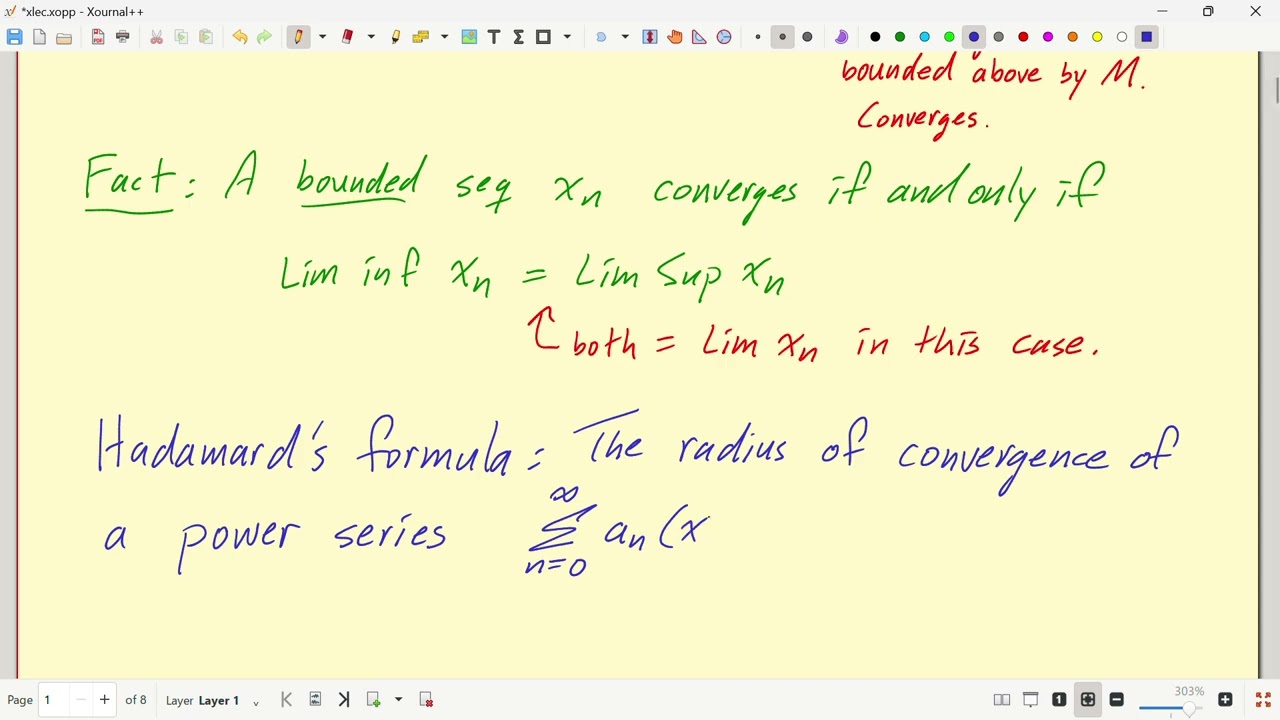 *xlec.xopp - Xournal++
bounded above by M.
Converges.
Fact: A bounded seq xn converges if and only if
Lim inf xn = Lim Sup xn
both = Lim xn in this case.
Hadamard's formula: The radius of convergence of
a power series ∑ n=0 ∞ an (x
Page 1 of 8 Layer Layer 1 303%